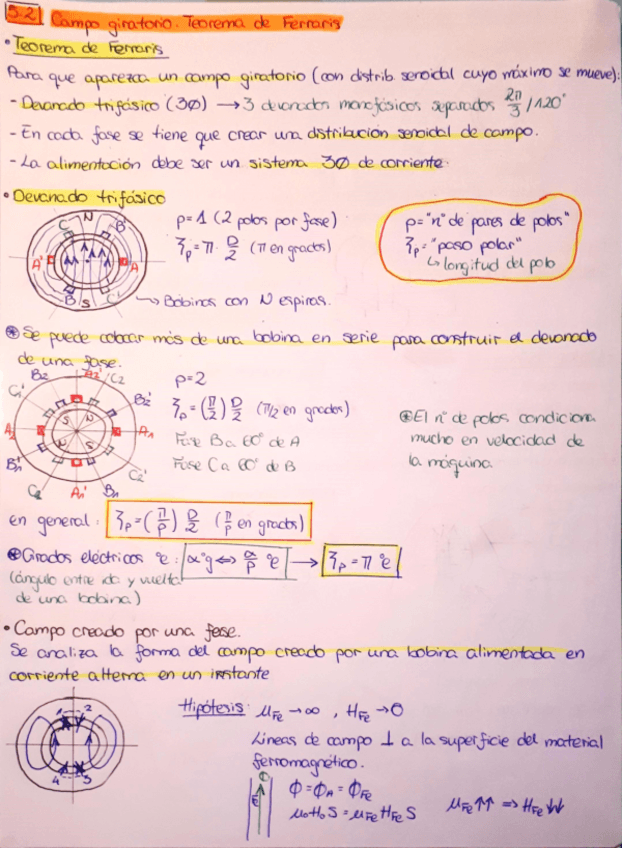 5.2 Campo giratorio. Teorema de Ferraris
• Teorema de Ferraris
Para que aparezca un campo giratorio (con distrib. senoidal cuyo máximo se mueve):
- Devanado trifásico (3ø) → 3 devanados monofásicos separados 2π/3 / 120°
- En cada fase se tiene que crear una distribución senoidal de campo.
- La alimentación debe ser un sistema 3ø de corriente.
• Devanado trifásico
C N B'
A' A
B S C'
p=1 (2 polos por fase)
ζp = π · D/2 (π en grados)
→ Bobinas con N espiras.
p="nº de pares de polos"
ζp="paso polar"
↳ longitud del polo
⊛ Se puede colocar más de una bobina en serie para construir el devanado
de una fase.
B2 A2' C2
C1' B2'
A2 S N A1
N S
B1' C2'
C2 A1' B1
p=2
ζp = (π/2) D/2 (π/2 en grados)
Fase B a 60° de A
Fase C a 60° de B
⊛ El nº de polos condiciona
mucho en velocidad de
la máquina.
en general: ζp = (π/p) D/2 (π/p en grados)
⊛ Grados eléctricos °e: α°g ⇔ α/p °e → ζp = π °e
(ángulo entre ida y vuelta
de una bobina)
• Campo creado por una fase.
Se analiza la forma del campo creado por una bobina alimentada en
corriente alterna en un instante
1 2
4 3
Hipótesis: μFe → ∞ , HFe → 0
Líneas de campo ⊥ a la superficie del material
ferromagnético.
ϕ = ϕA = ϕFe
μ0 H0 S = μFe HFe S
μFe ↑↑ ⇒ HFe ↓↓